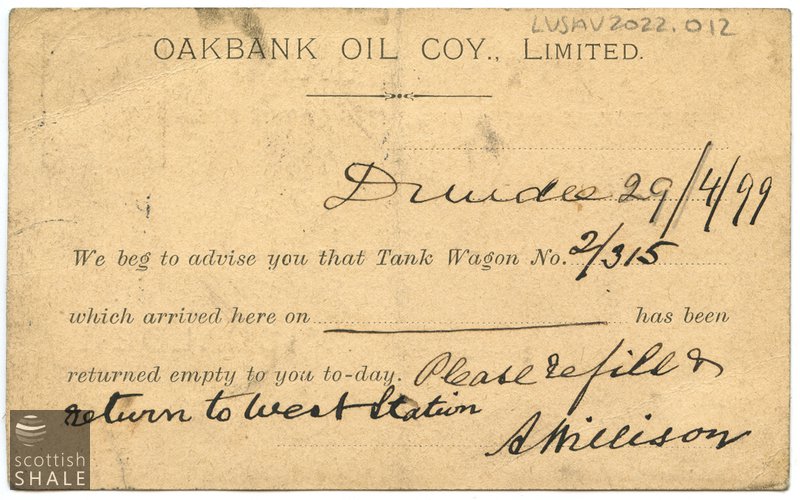 LVSAV2022.012
OAKBANK OIL COY., LIMITED.
Dundee 29/4/99
We beg to advise you that Tank Wagon No. 2/315
which arrived here on has been
returned empty to you to-day. Please refill &
return to West Station
A Willison
scottish
SHALE